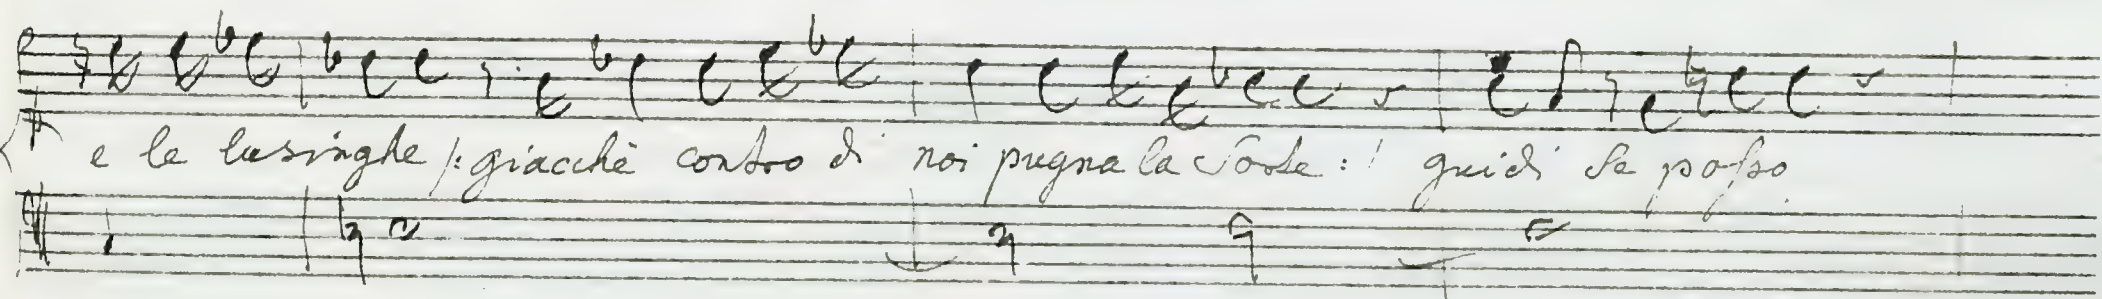 e le lusinghe /: giacchè contro di noi pugna la Sorte :/ guidi se posso